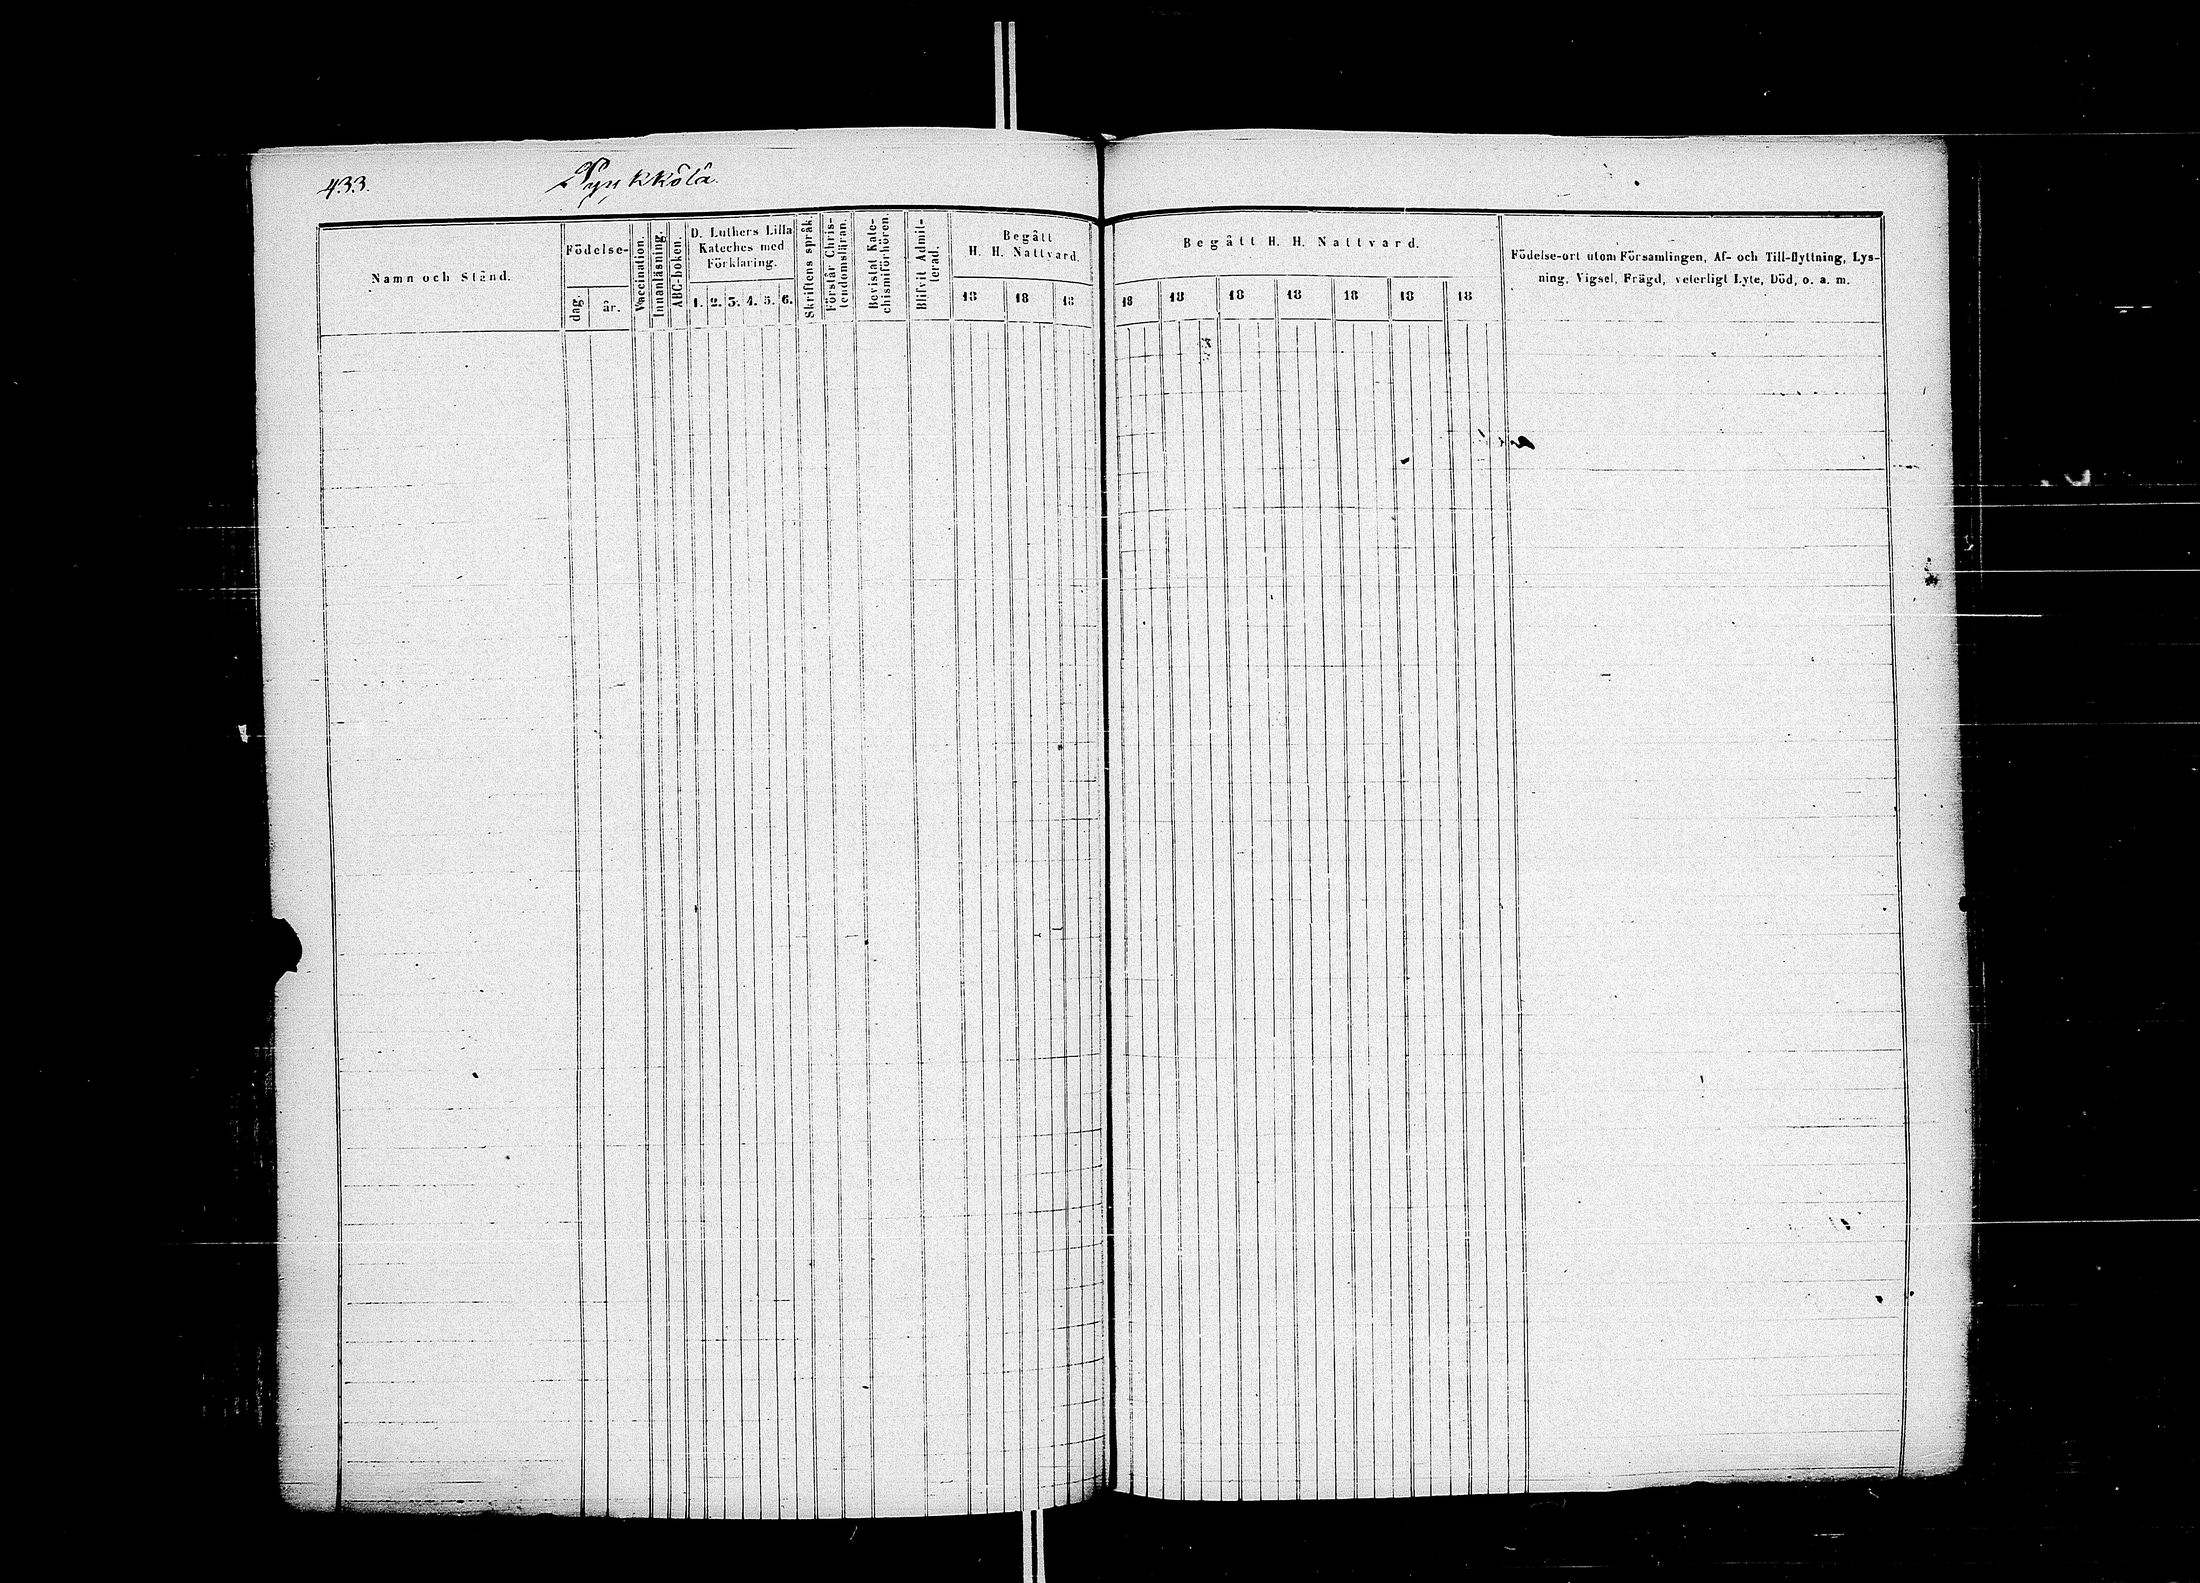 433.
Pynkkölä.
Namn och Stånd.
Födelse-
dag.
år.
Vaccination.
Innanläsning.
ABC-boken.
D. Luthers Lilla
Kateches med
Förklaring.
1. 2. 3. 4. 5. 6.
Skriftens språk.
Förstår Chris-
tendomsläran.
Bevistat Kate-
chismiförhören.
Blifvit Admit-
terad.
Begått
H. H. Nattvard.
18 18 18
Begått H. H. Nattvard.
18 18 18 18 18 18 18
Födelse-ort utom Församlingen, Af- och Till-flyttning, Lys-
ning, Vigsel, Frägd, veterligt Lyte, Död, o. a. m.